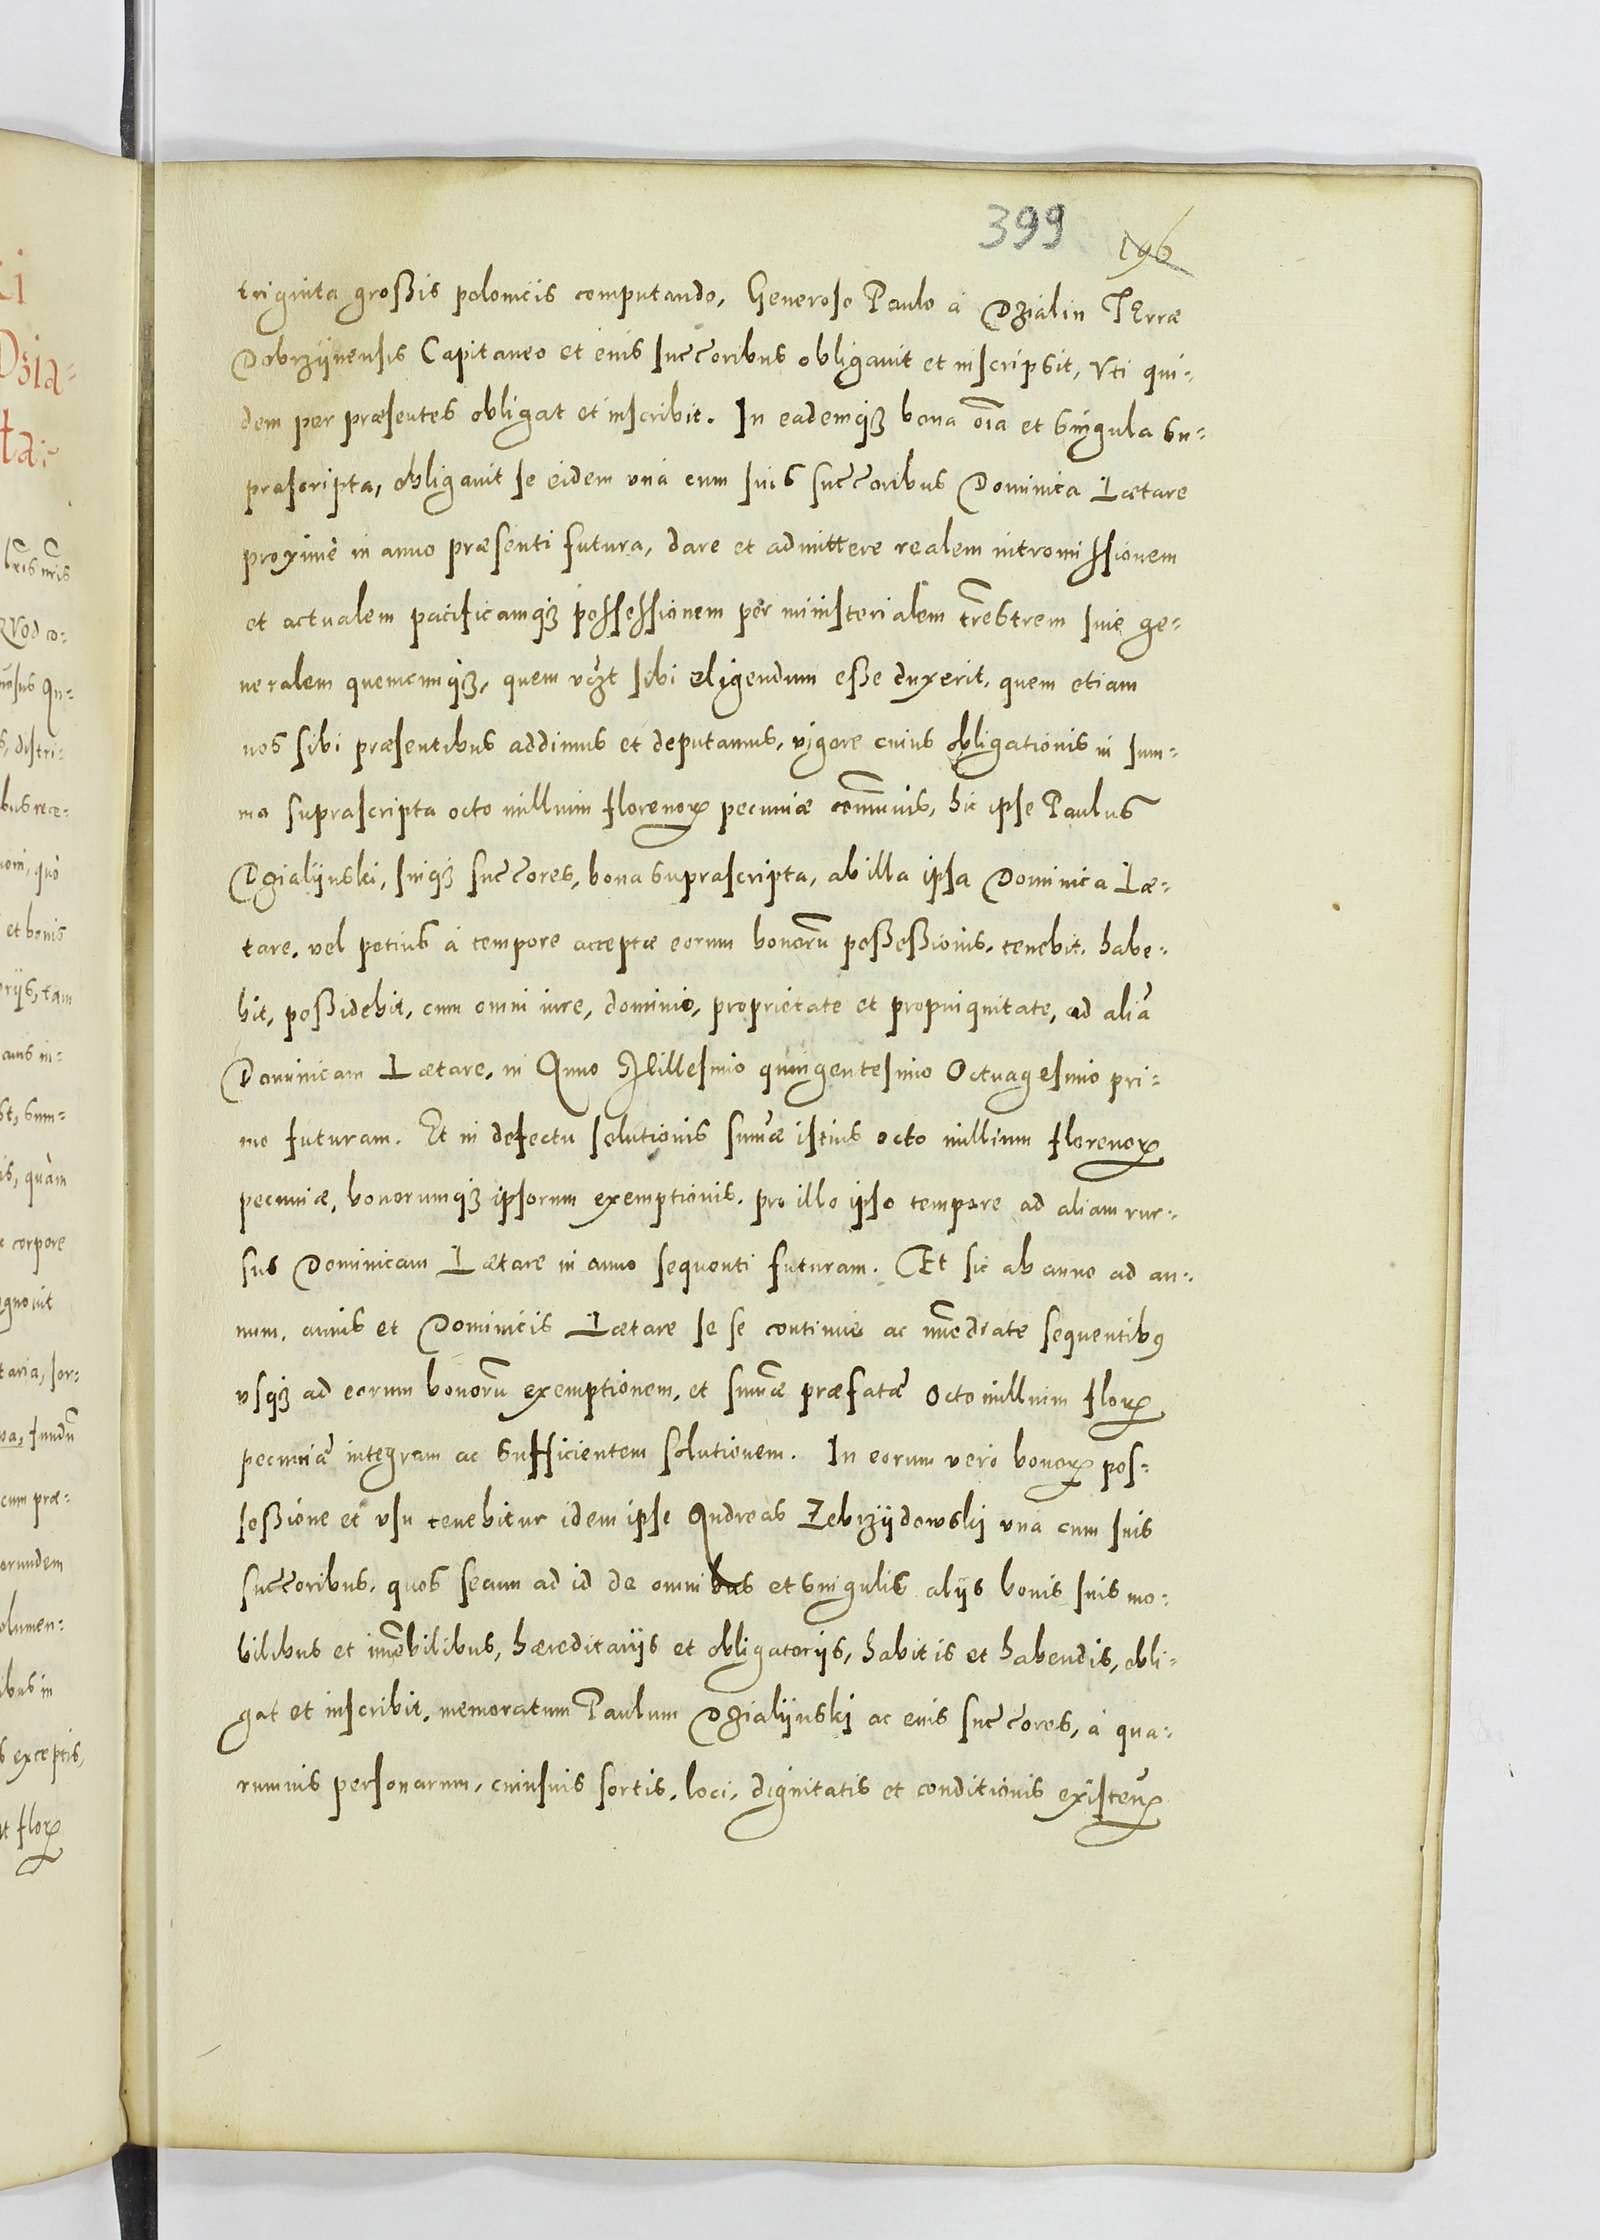 399 196
triginta großis polonicis computando, Generoso Paulo à Dzialin TErræ
Dobrzijnensis Capitaneo et eius succ̃oribus obligauit et inscripsit, Vti qui-
dem per præsentes obligat et inscribit. In eademqȝ bona oĩa et singula su-
prascripta, obligauit se eidem vnà cum suis succ̃oribus Dominica Lætare
proximè in anno præsenti futura, dare et admittere realem intromissionem
et actualem pacificamqȝ possessionem per ministerialem tr̃estrem siue ge-
neralem quemcumqȝ, quem sibi eligendum eße duxerit, quem etiam
nos sibi præsentibus addimus et deputamus, vigore cuius obligationis in sum-
ma suprascripta octo millium florenoꝝ pecuniæ com̃unis, hic ipse Paulus
Dzialijnski, suiqȝ succ̃ores, bona suprascripta, ab illa ipsa Dominica Læ-
tare, vel potius à tempore acceptæ eorum bonorũ poßeßionis, tenebit, habe-
bit, poßidebit, cum omni iure, dominio, proprietate et propinquitate, ad aliã
Dominicam Lætare, in Anno Millesimo quingentesimo Octuagesimo pri-
mo futuram. Et in defectu solutionis sum̃æ istius octo millium florenoꝝ
pecuniæ, bonorumqȝ ipsorum exemptionis, pro illo ipso tempore ad aliam rur-
sus Dominicam Lætare in anno sequenti futuram. Et sic ab anno ad an-
num, annis et Dominicis Lætare se se continuè ac im̃ediate sequentibꝰ
vsqȝ ad eorum bonorũ exemptionem, et sum̃æ præfatæ octo millium floꝝ
pecuniæ integram ac sufficientem solutionem. In eorum verò bonoꝝ pos-
seßione et vsu tenebitur idem ipse Andreas Zebrzijdowski vnà cum suis
succ̃oribus, quos secum ad id de omnibus et singulis alijs bonis suis mo-
bilibus et im̃obilibus, hæreditarijs et obligatorijs, habitis et habendis, obli-
gat et inscribit, memoratum Paulum Dzialijnski ac eius succ̃ores, à qua-
rumuis personarum, cuiusuis sortis, loci, dignitatis et conditionis existen̄ꝝ